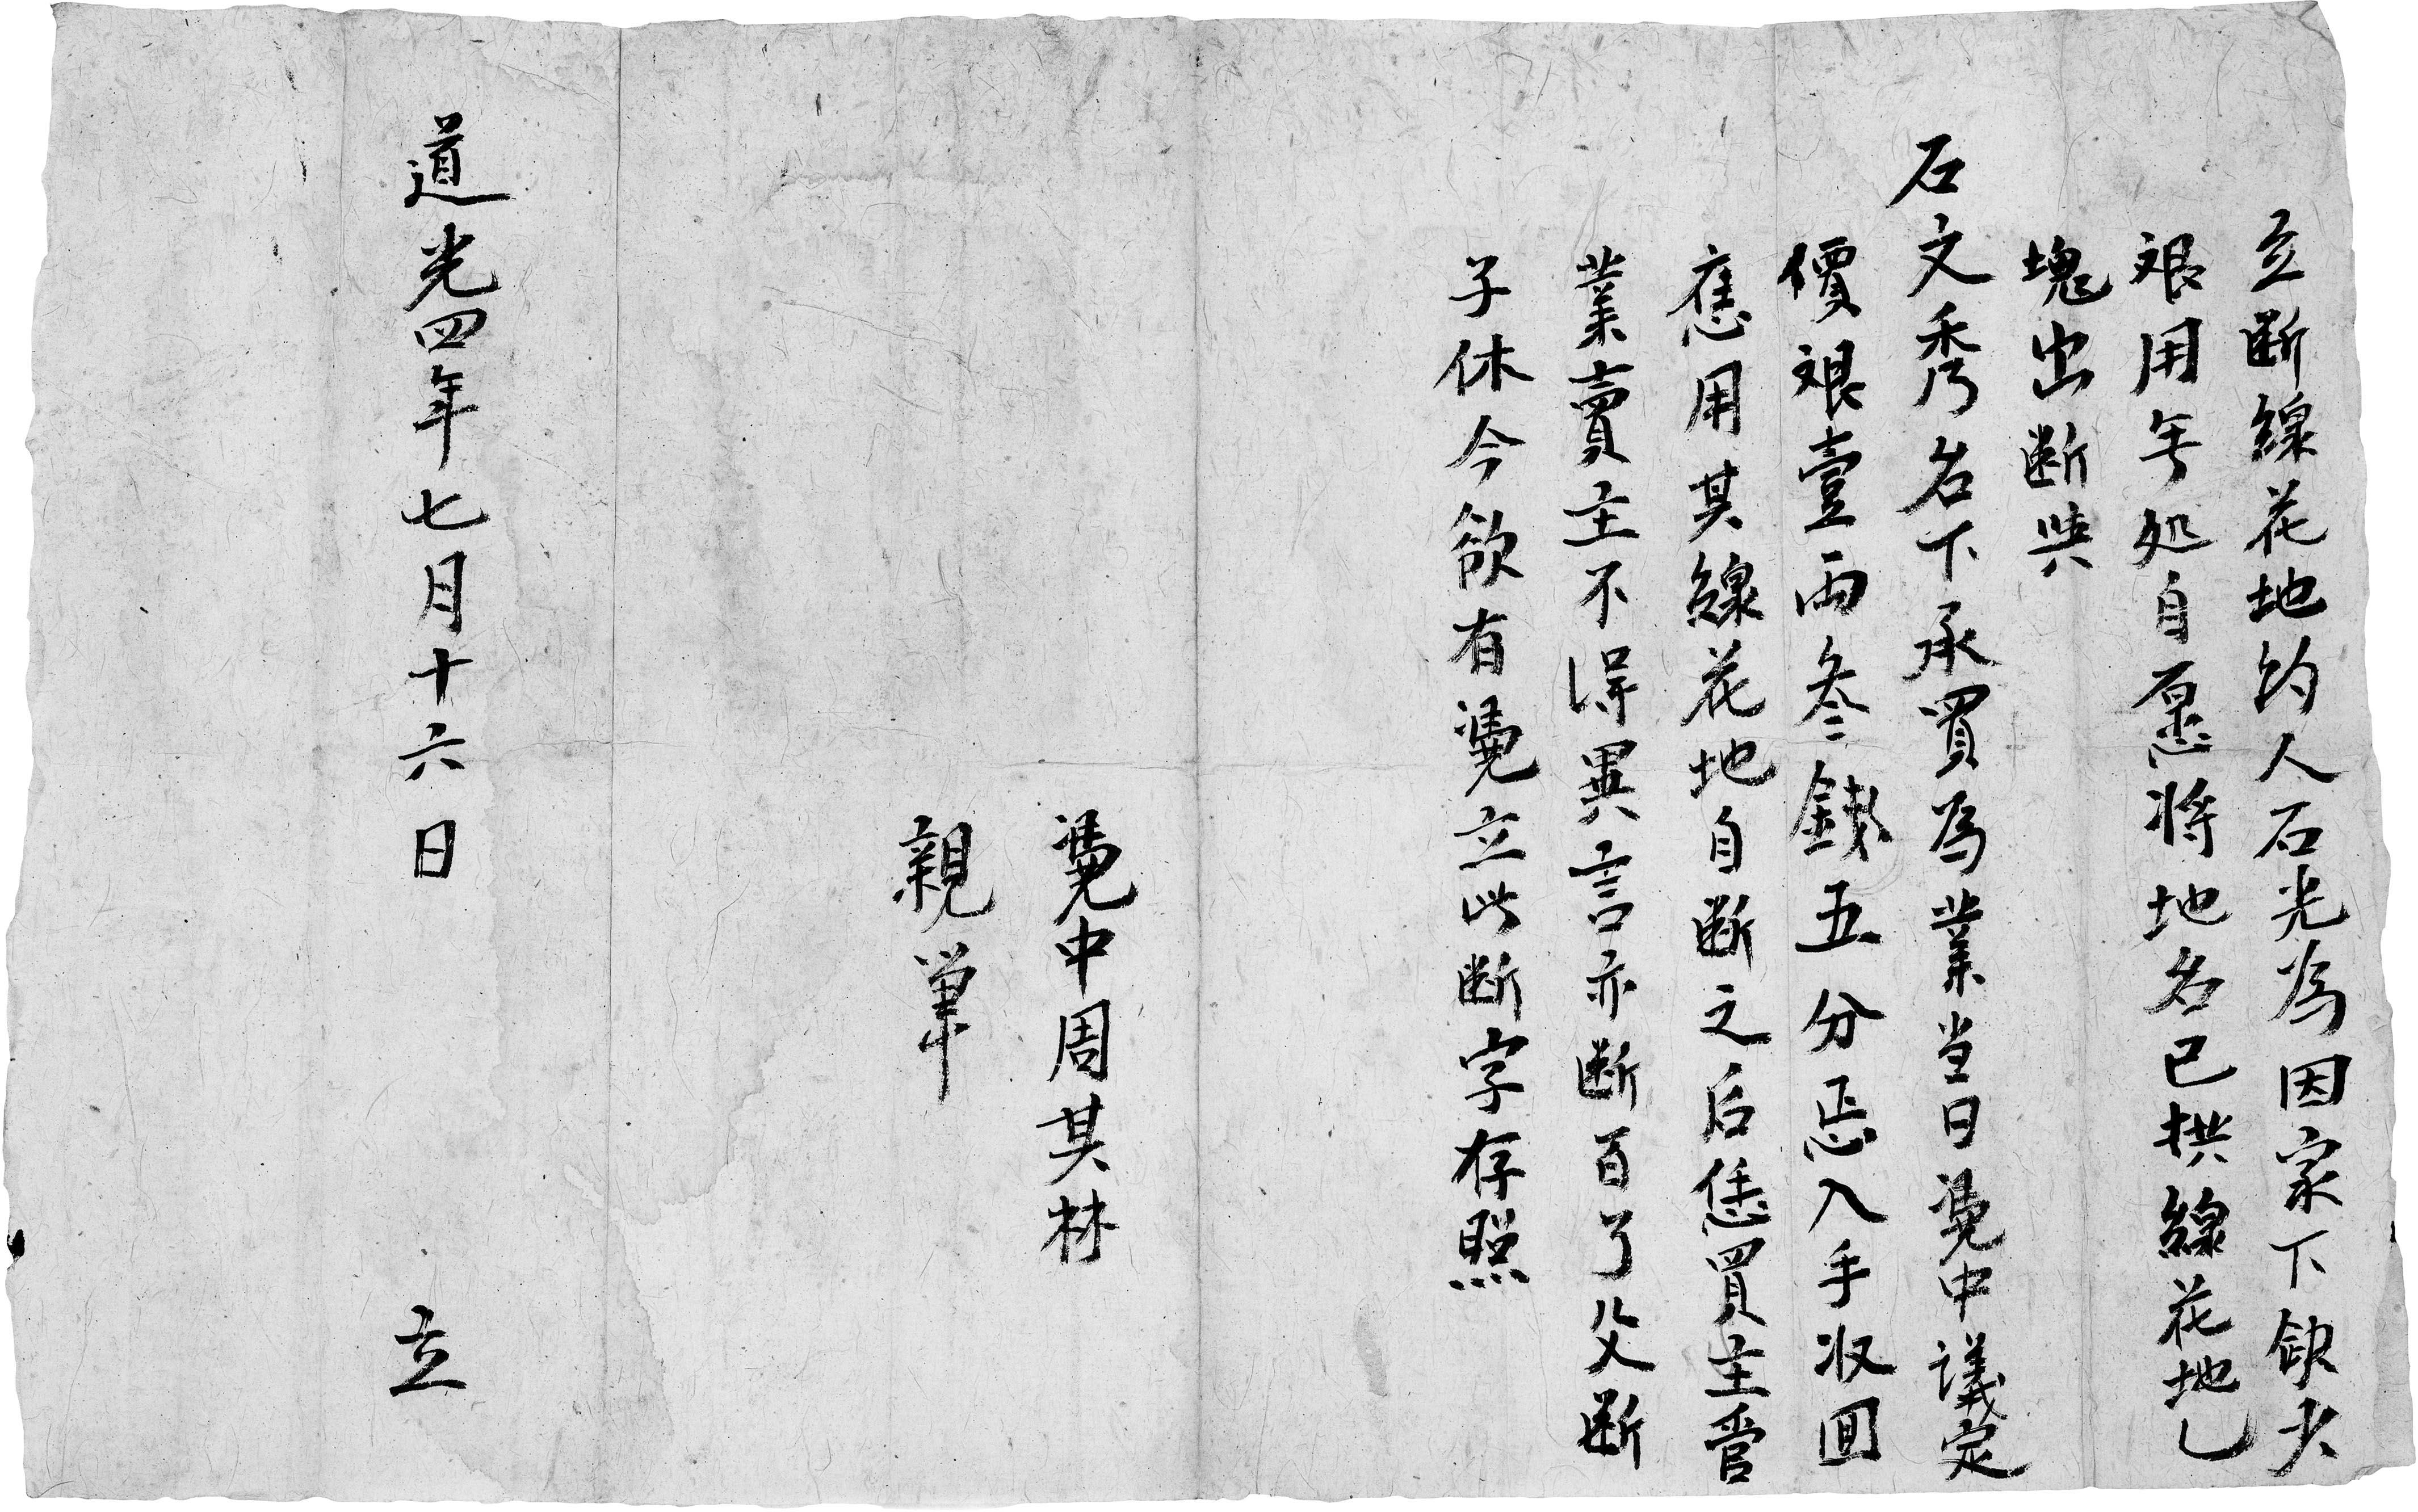 立断線花地約人石光為因家下缺少
艮用無処自愿将地名已拱線花地乚
塊出断與
石文秀名下承買為業当日凴中議定
價艮壹両叁錢五分焉入手収回
應用其線花地自断之后恁買主管
業賣主不得異言亦断百了父断
子休今欲有凴立此断字存照
凴中周其林
親筆
道光四年七月十六日 立